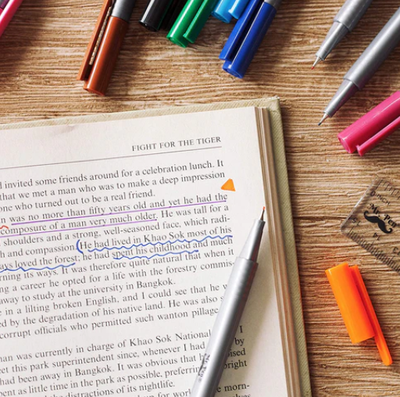 FIGHT FOR THE TIGER
d invited some friends around for a celebration lunch. It
that we met a man who was to make a deep impression
one who turned out to be a real friend.
n was no more than fifty years old and yet he had the
composure of a man very much older. He was tall for a
shoulders and a strong, well-seasoned face, which radi-
and compassion. He had lived in Khao Sok most of his
and loved the forest; he had spent his childhood and much
rning its ways. It was therefore quite natural that when
ng a career he opted for a life with the forestry
away to study at the university in Bangkok.
e in a lilting broken English, and I could see that he w
ed by the degradation of his native land. He was also
corrupt officials who permitted such wanton pillage
man was currently in charge of Khao Sok National
et this park superintendent since, whenever I had
had been away in Bangkok. It was obvious that he
ent as little time in the park as possible,
the distractions of its nightlife.